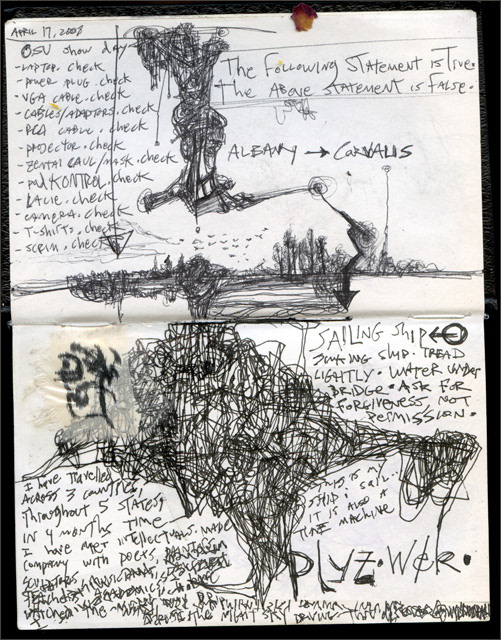 APRIL 17, 2008
OSU show day
- LAPTOP. check
- POWER PLUG. check
- VGA CABLE. check
- CABLES/ADAPTERS. check
- RCA CABLE. check
- PROJECTOR. check
- ZENTAI CAUL/MASK. check
- pad KONTROL. check
- LACIE. check
- CAMERA. check
- T-SHIRTS. check
- SCRIM. check
The Following Statement is True.
The Above Statement is False.
ALBANY → CORVALLIS
SAILING Ship
SINKING SHIP. TREAD
LIGHTLY. WATER UNDER
BRIDGE. ASK FOR
FORGIVENESS NOT
PERMISSION.
THIS IS MY
SHIP i SAIL.
IT IS ALSO A
TIME MACHINE
I have TRAVELLED
ACROSS 3 COUNTRIES,
Throughout 5 STATES
IN 4 MONTHS TIME
I HAVE MET INTELLECTUALS, MADE
COMPANY WITH POETS,
SCULPTORS, MUSICIANS,
ACADEMICS,
WATCHED THE
ACROSS THE NIGHT SKY